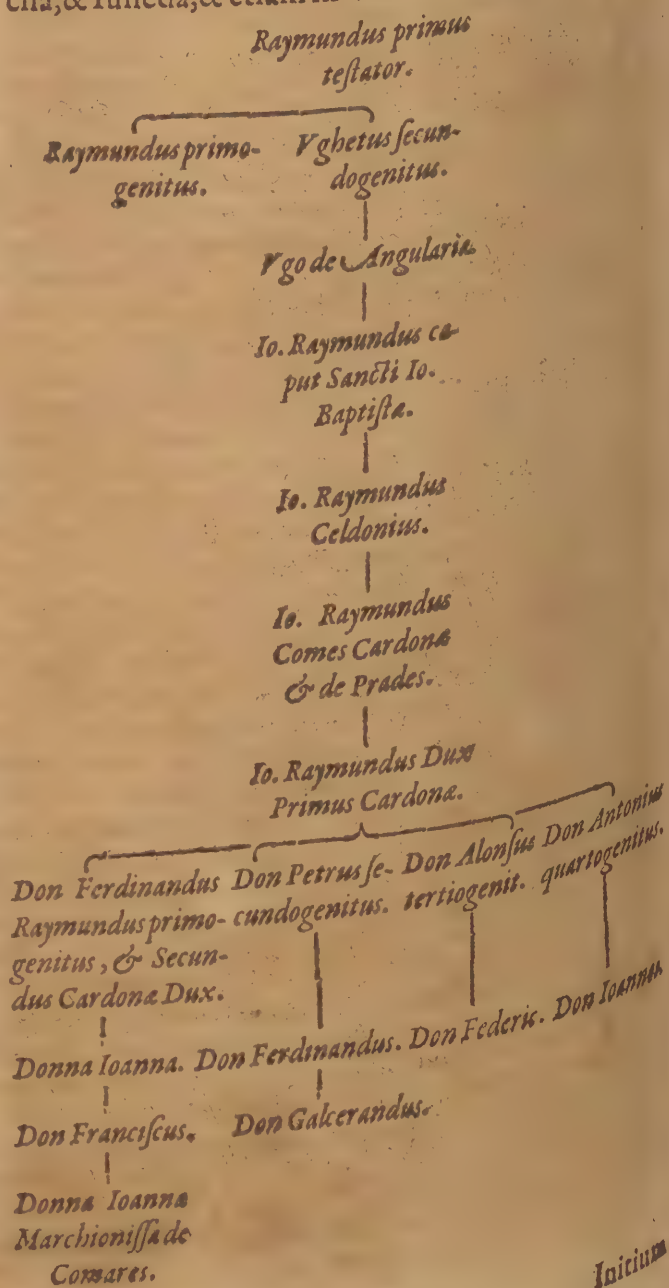 & etiam
Raymundus primus
testator.
Raymundus primo-
genitus.
Vghetus secun-
dogenitus.
Vgo de Angularia
Io. Raymundus ca-
put Sancti Io.
Baptistæ.
Io. Raymundus
Celdonius.
Io. Raymundus
Comes Cardonæ
& de Prades.
Io. Raymundus Dux
Primus Cardonæ.
Don Ferdinandus
Raymundus primo-
genitus, & Secun-
dus Cardonæ Dux.
Don Petrus se-
cundogenitus.
Don Alonsus
tertiogenit.
Don Antonius
quartogenitus.
Donna Ioanna.
Don Ferdinandus.
Don Federic.
Don Ioannes
Don Franciscus.
Don Galcerandus.
Donna Ioanna
Marchionissa de
Comares.
Initium